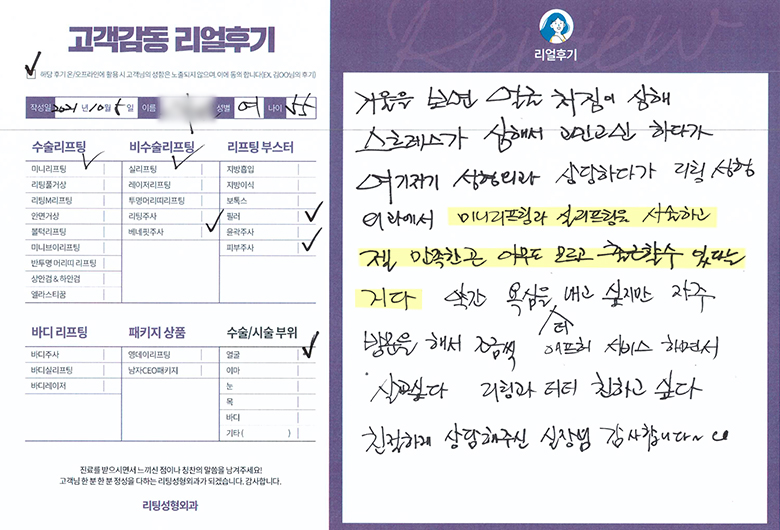 고객감동 리얼후기
해당 후기 온/오프라인에 활용 시 고객님의 성함은 노출되지 않으며, 이에 동의 합니다(EX. 김OO님의 후기)
작성일 2021년 10월 5일 이름 성별 여 나이 55
수술리프팅
미니리프팅
리팅풀거상
리팅M리프팅
안면거상
볼럭리프팅
미니브이리프팅
반투명 머리띠 리프팅
상안검 & 하안검
엘라스티꿈
비수술리프팅
실리프팅
레이저리프팅
투명머리띠리프팅
리팅주사
베네핏주사
리프팅 부스터
지방흡입
지방이식
보톡스
필러
윤곽주사
피부주사
바디 리프팅
바디주사
바디실리프팅
바디레이저
패키지 상품
영데이리프팅
남자CEO패키지
수술/시술 부위
얼굴
이마
눈
목
바디
기타 ( )
진료를 받으시면서 느끼신 점이나 칭찬의 말씀을 남겨주세요!
고객님 한 분 한 분 정성을 다하는 리팅성형외과가 되겠습니다. 감사합니다.
리팅성형외과
Review
리얼후기
거울을 보면 얼굴 처짐이 심해
스트레스가 심해서 고민고민 하다가
여기저기 성형외과 상담하다가 리팅 성형
외과에서 미니리프팅과 실리프팅을 시술하고
제일 만족한건 아무도 모르고 출근할수 있다는
거다 약간 욕심을 더 내고 싶지만 자주
방문을 해서 조금씩 서비스 하면서
살고싶다 리팅과 더더 친하고 싶다
친절하게 상담해주신 실장님 감사합니다~